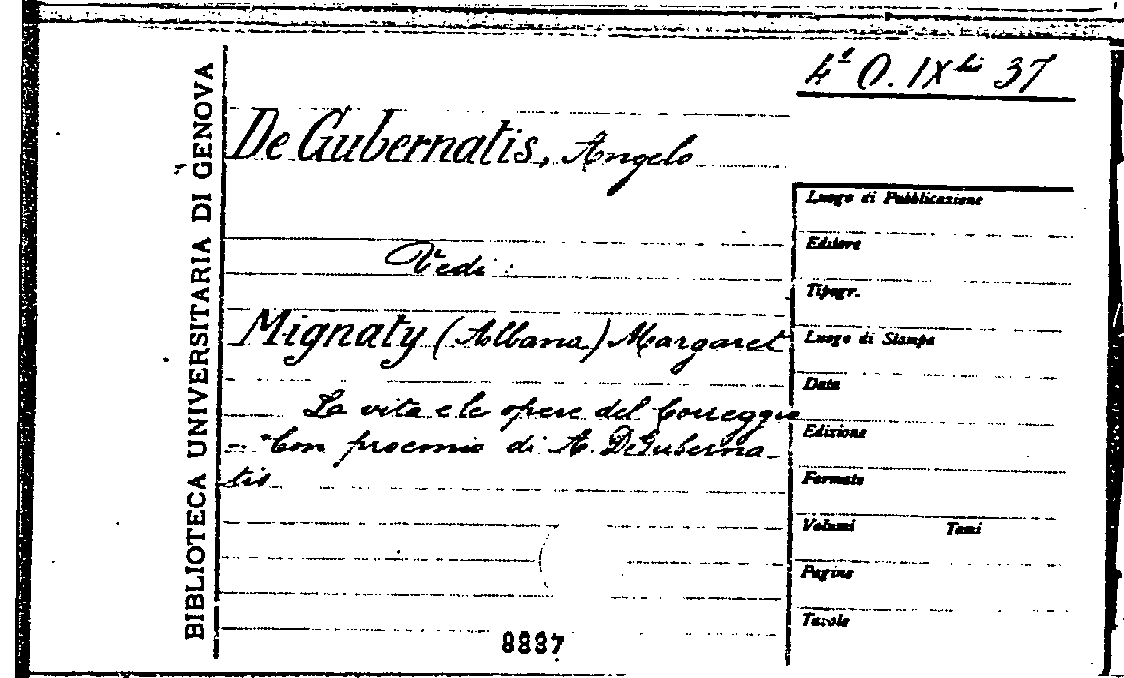 4ª O. IX bis 37
BIBLIOTECA UNIVERSITARIA DI GENOVA
De Gubernatis, Angelo
Vedi:
Mignaty (Albana) Margaret
La vita e le opere del Correggio
- Con proemio di A. De Guberna-
tis
8837
Luogo di Pubblicazione
Editore
Tipogr.
Luogo di Stampa
Data
Edizione
Formato
Volumi Tomi
Pagine
Tavole